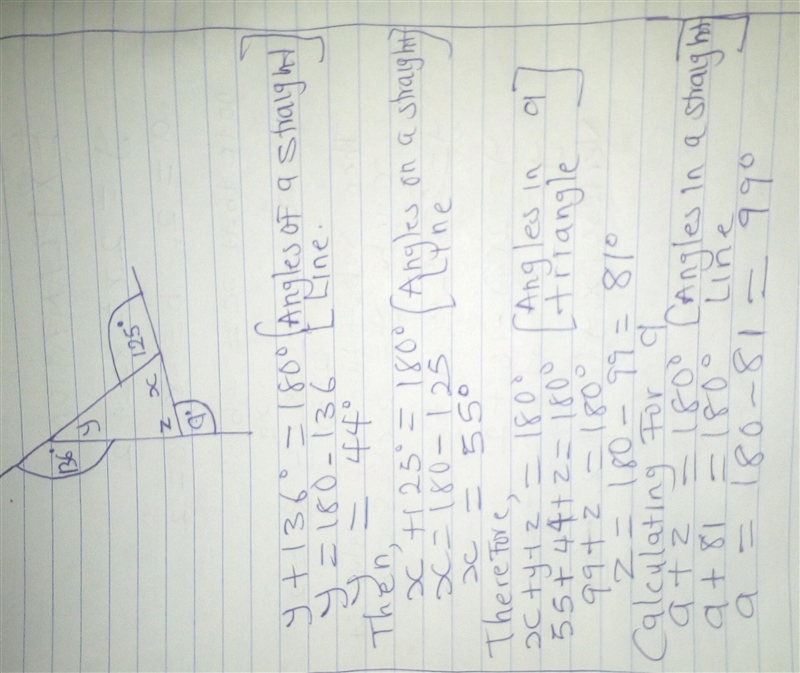 136°
y
125°
x
z
a°
y + 136° = 180° [Angles of a straight
y = 180 - 136 Line.]
y = 44°
Then,
x + 125° = 180° [Angles on a straight
x = 180 - 125 Line]
x = 55°
Therefore,
x + y + z = 180° [Angles in a
55 + 44 + z = 180° triangle]
99 + z = 180°
z = 180 - 99 = 81°
Calculating For a
a + z = 180° [Angles in a straight
a + 81 = 180° Line]
a = 180 - 81 = 99°